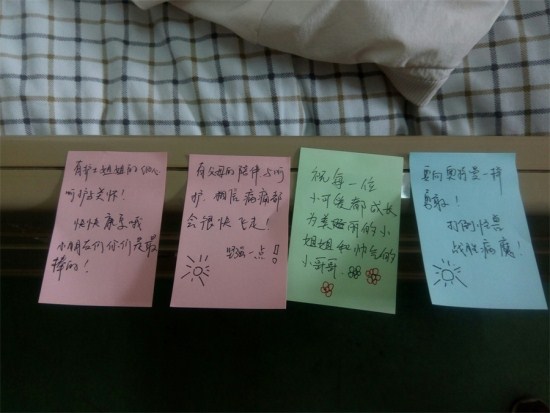 有护士姐姐的细心
呵护与关怀!
快快康复哦
小朋友们你们是最
棒的!
有父母的陪伴与呵
护,相信病痛都
会很快飞走!
坚强一点!
祝每一位
小可爱都成长
为美丽的小
姐姐和帅气的
小哥哥.
要向奥特曼一样
勇敢!
打倒怪兽
战胜病魔!